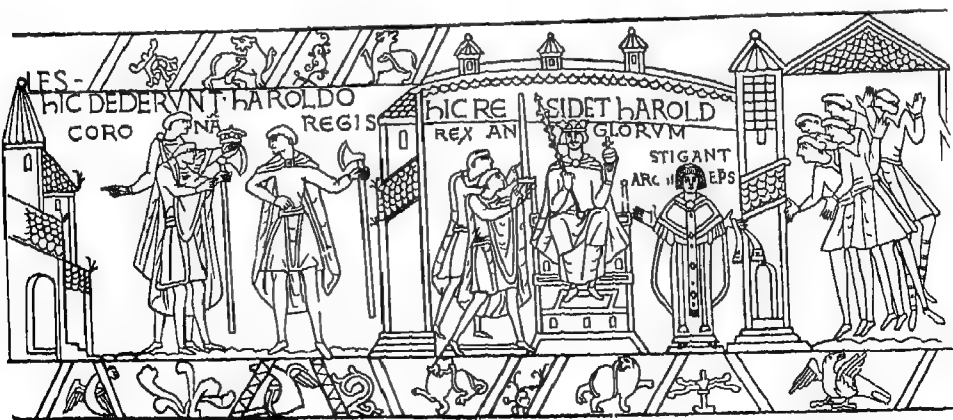 LES-
hIC DEDERVNT·hAROLDO
CORO NĀ REGIS
hIC RE SIDET hAROLD
REX AN GLORVM
STIGANT
ARC II EPS